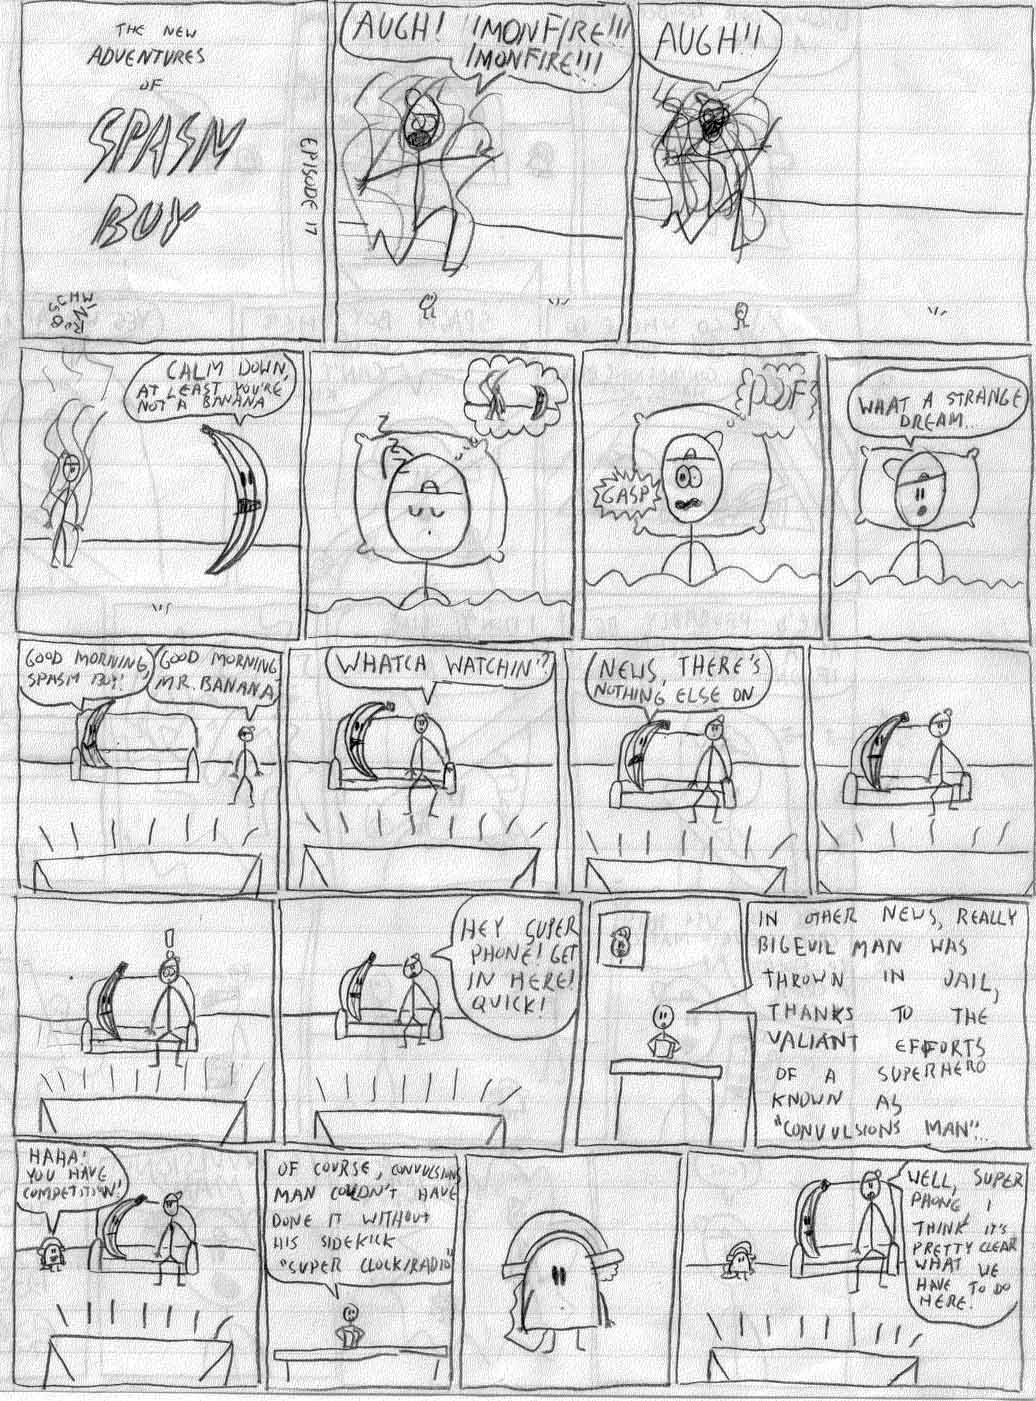 THE NEW
ADVENTURES
OF
SPASM
BUY
EPISODE 17
AUGH! IMONFIRE!!!
IMONFIRE!!!
AUGH!!
CALM DOWN,
AT LEAST YOU'RE
NOT A BANANA
Z
Z
Z
POOF!
GASP
WHAT A STRANGE
DREAM..
GOOD MORNING,
SPASM BUY!
GOOD MORNING
MR. BANANA
WHATCA WATCHIN'?
NEWS, THERE'S
NOTHING ELSE ON
!
HEY, SUPER
PHONE! GET
IN HERE!
QUICK!
IN OTHER NEWS, REALLY
BIG EVIL MAN WAS
THROWN IN JAIL,
THANKS TO THE
VALIANT EFFORTS
OF A SUPERHERO
KNOWN AS
"CONVULSIONS MAN"...
HAHA!
YOU HAVE
COMPETITION!
OF COURSE, CONVULSIONS
MAN COULDN'T HAVE
DONE IT WITHOUT
HIS SIDEKICK
"SUPER CLOCK/RADIO"
WELL, SUPER
PHONE, I
THINK IT'S
PRETTY CLEAR
WHAT WE
HAVE TO DO
HERE.